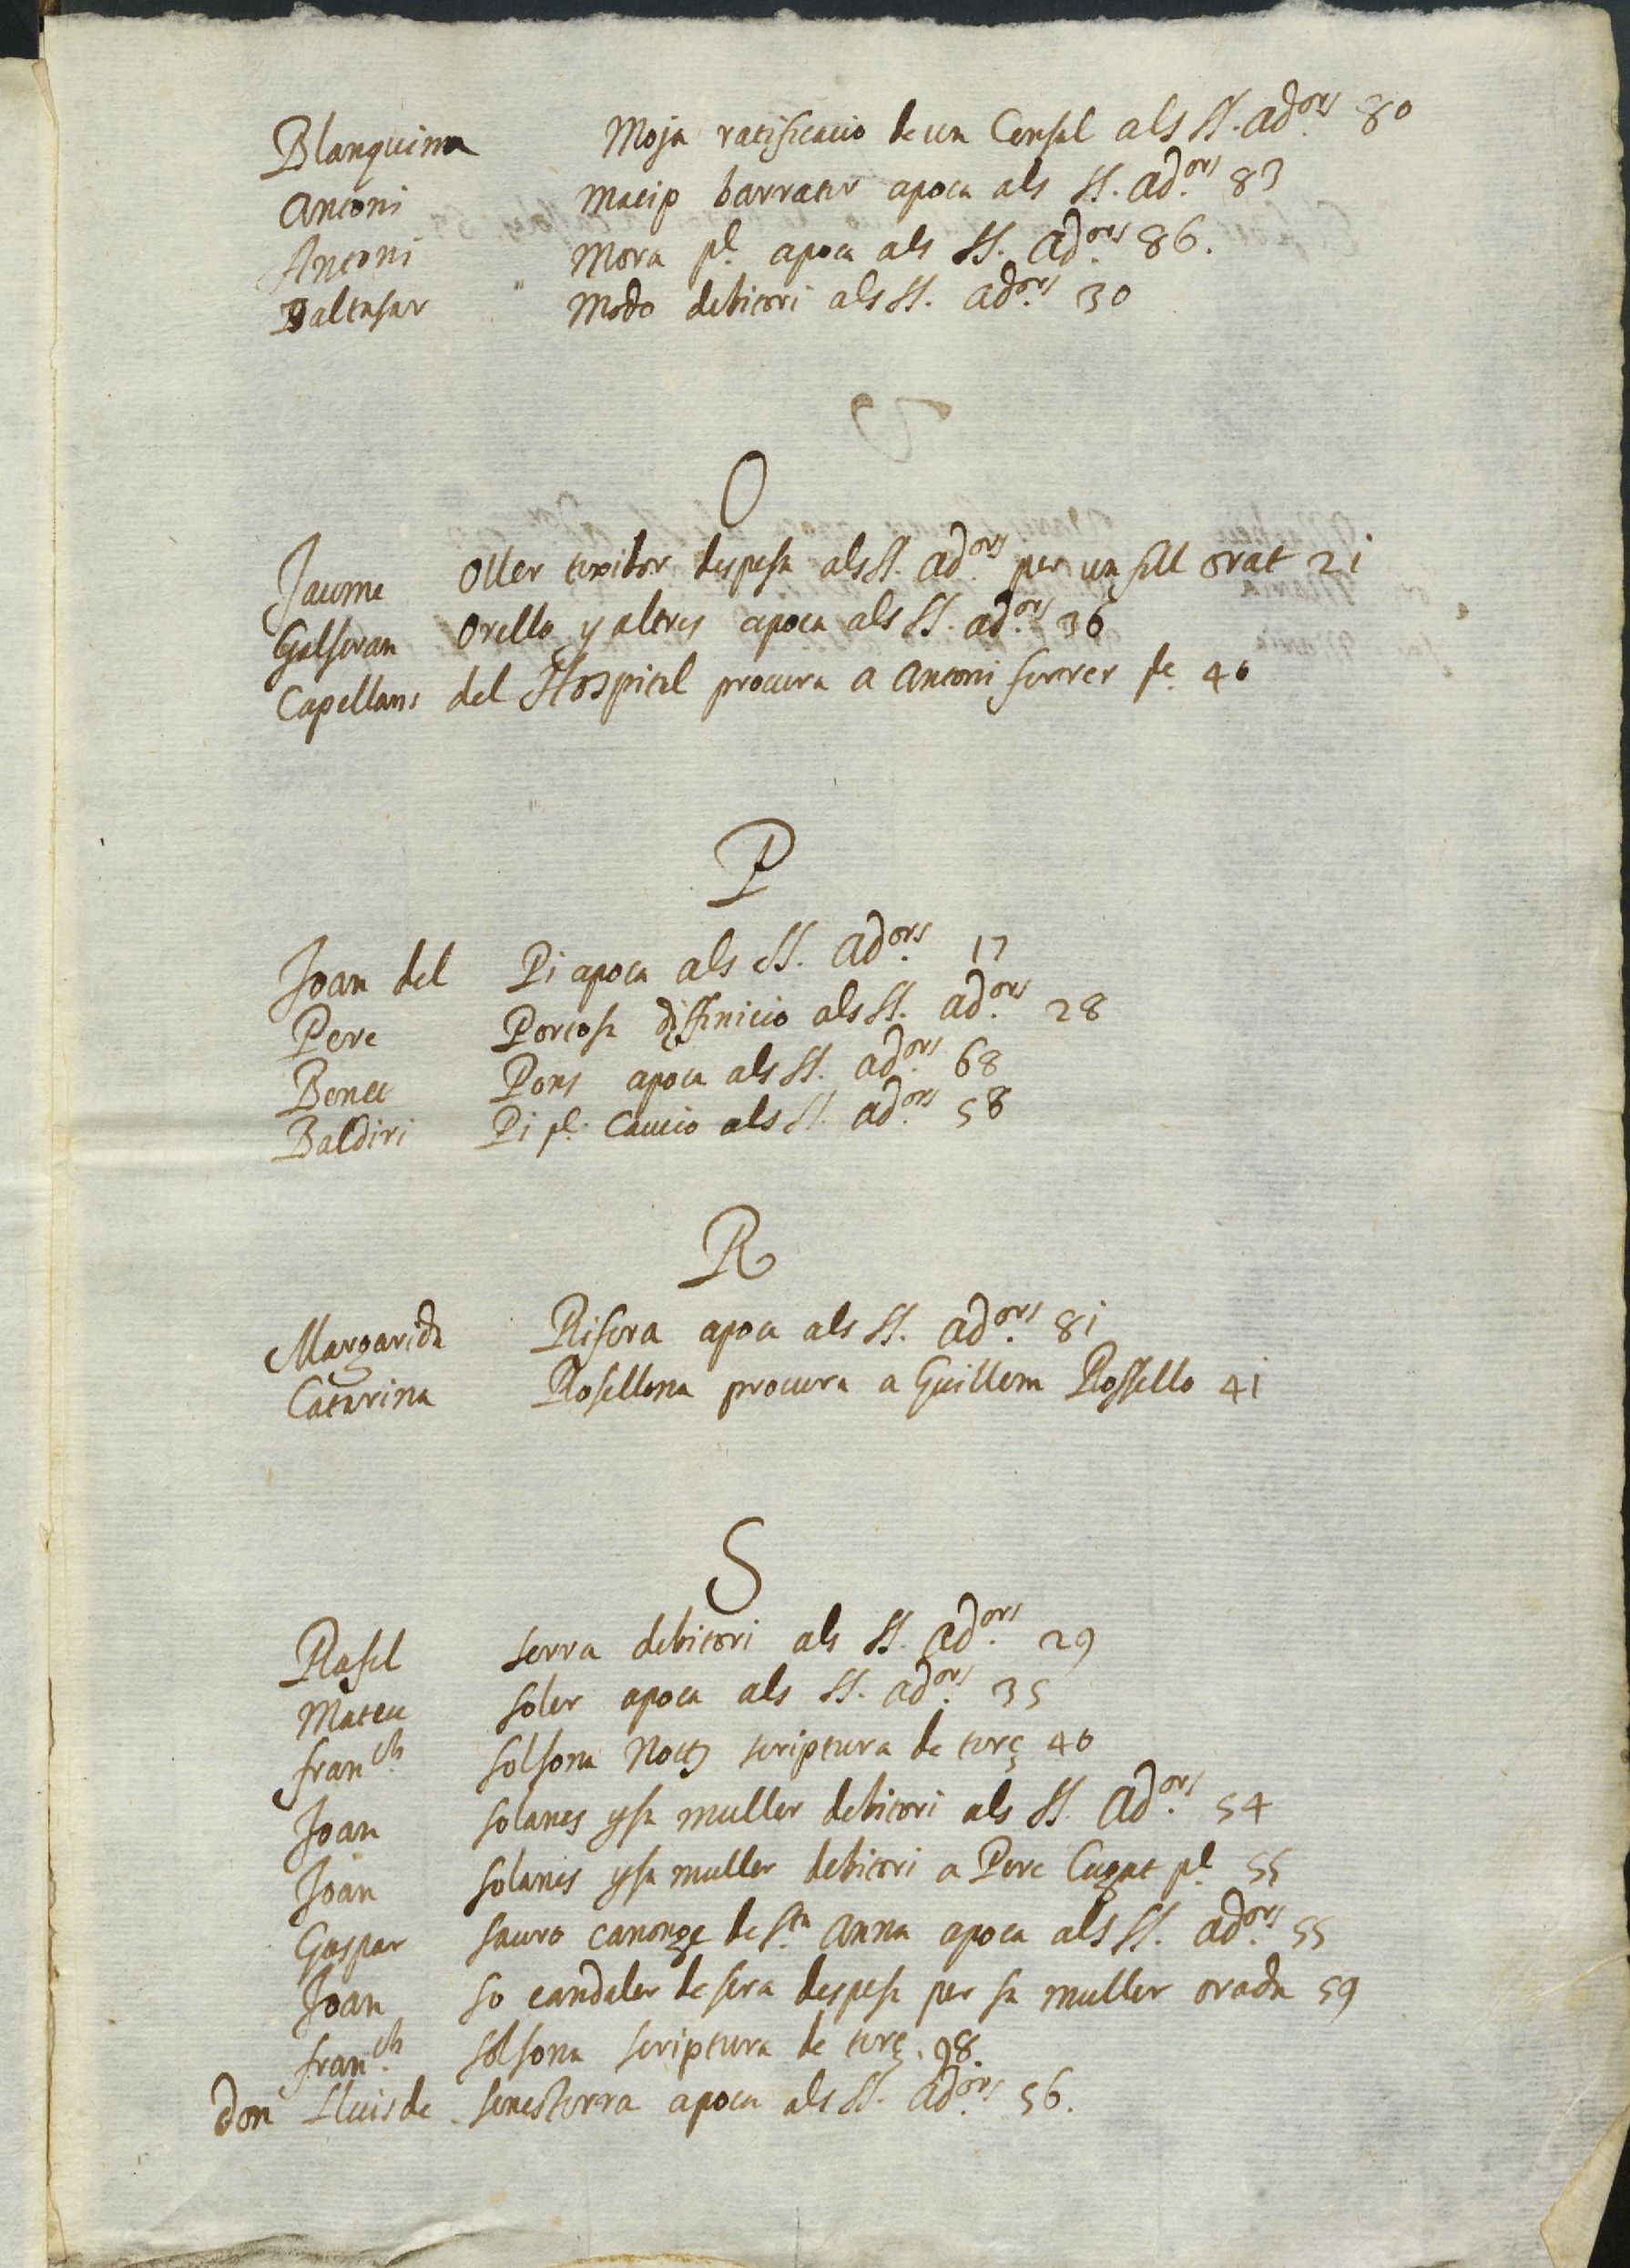 Blanquina Moja ratificacio de un Censal als SS. ad.ors 80
Antoni Macip barrater apoca als SS. ad.ors 83
Antoni Mora pl. apoca als SS. ad.ors 86.
Baltasar Modo debitori als SS. ad.ors 30
O
Jaume Oller texidor despesa als SS. ad.ors per un fill orat 21
Galseran Orello y altres apoca als SS. ad.ors 36
Capellans del Hospital procura a Antoni ferrer fe. 40
P
Joan del Pi apoca als SS. ad.ors 17
Pere Portosa diffinicio als SS. ad.ors 28
Benet Pons apoca als SS. ad.ors 68
Baldiri Pi pl. Caucio als SS. ad.ors 58
R
Margarida Rifera apoca als SS. ad.ors 81
Catarina Rosellona procura a Guillem Rossello 41
S
Rafel Serra debitori als SS. ad.ors 29
Mateu Soler apoca als SS. ad.ors 35
fran.ch Solsona Not scriptura de terç 40
Joan Solanes y sa muller debitori als SS. ad.ors 54
Joan Solanes y sa muller debitori a Pere Cugat pl. 55
Gaspar Sauro canonge de S.ta Anna apoca als SS. ad.ors 55
Joan So candeler de sera despesa per sa muller orada 59
fran.ch Solsona scriptura de terç. 98.
don Lluis de Senesterra apoca als SS. ad.ors 56.